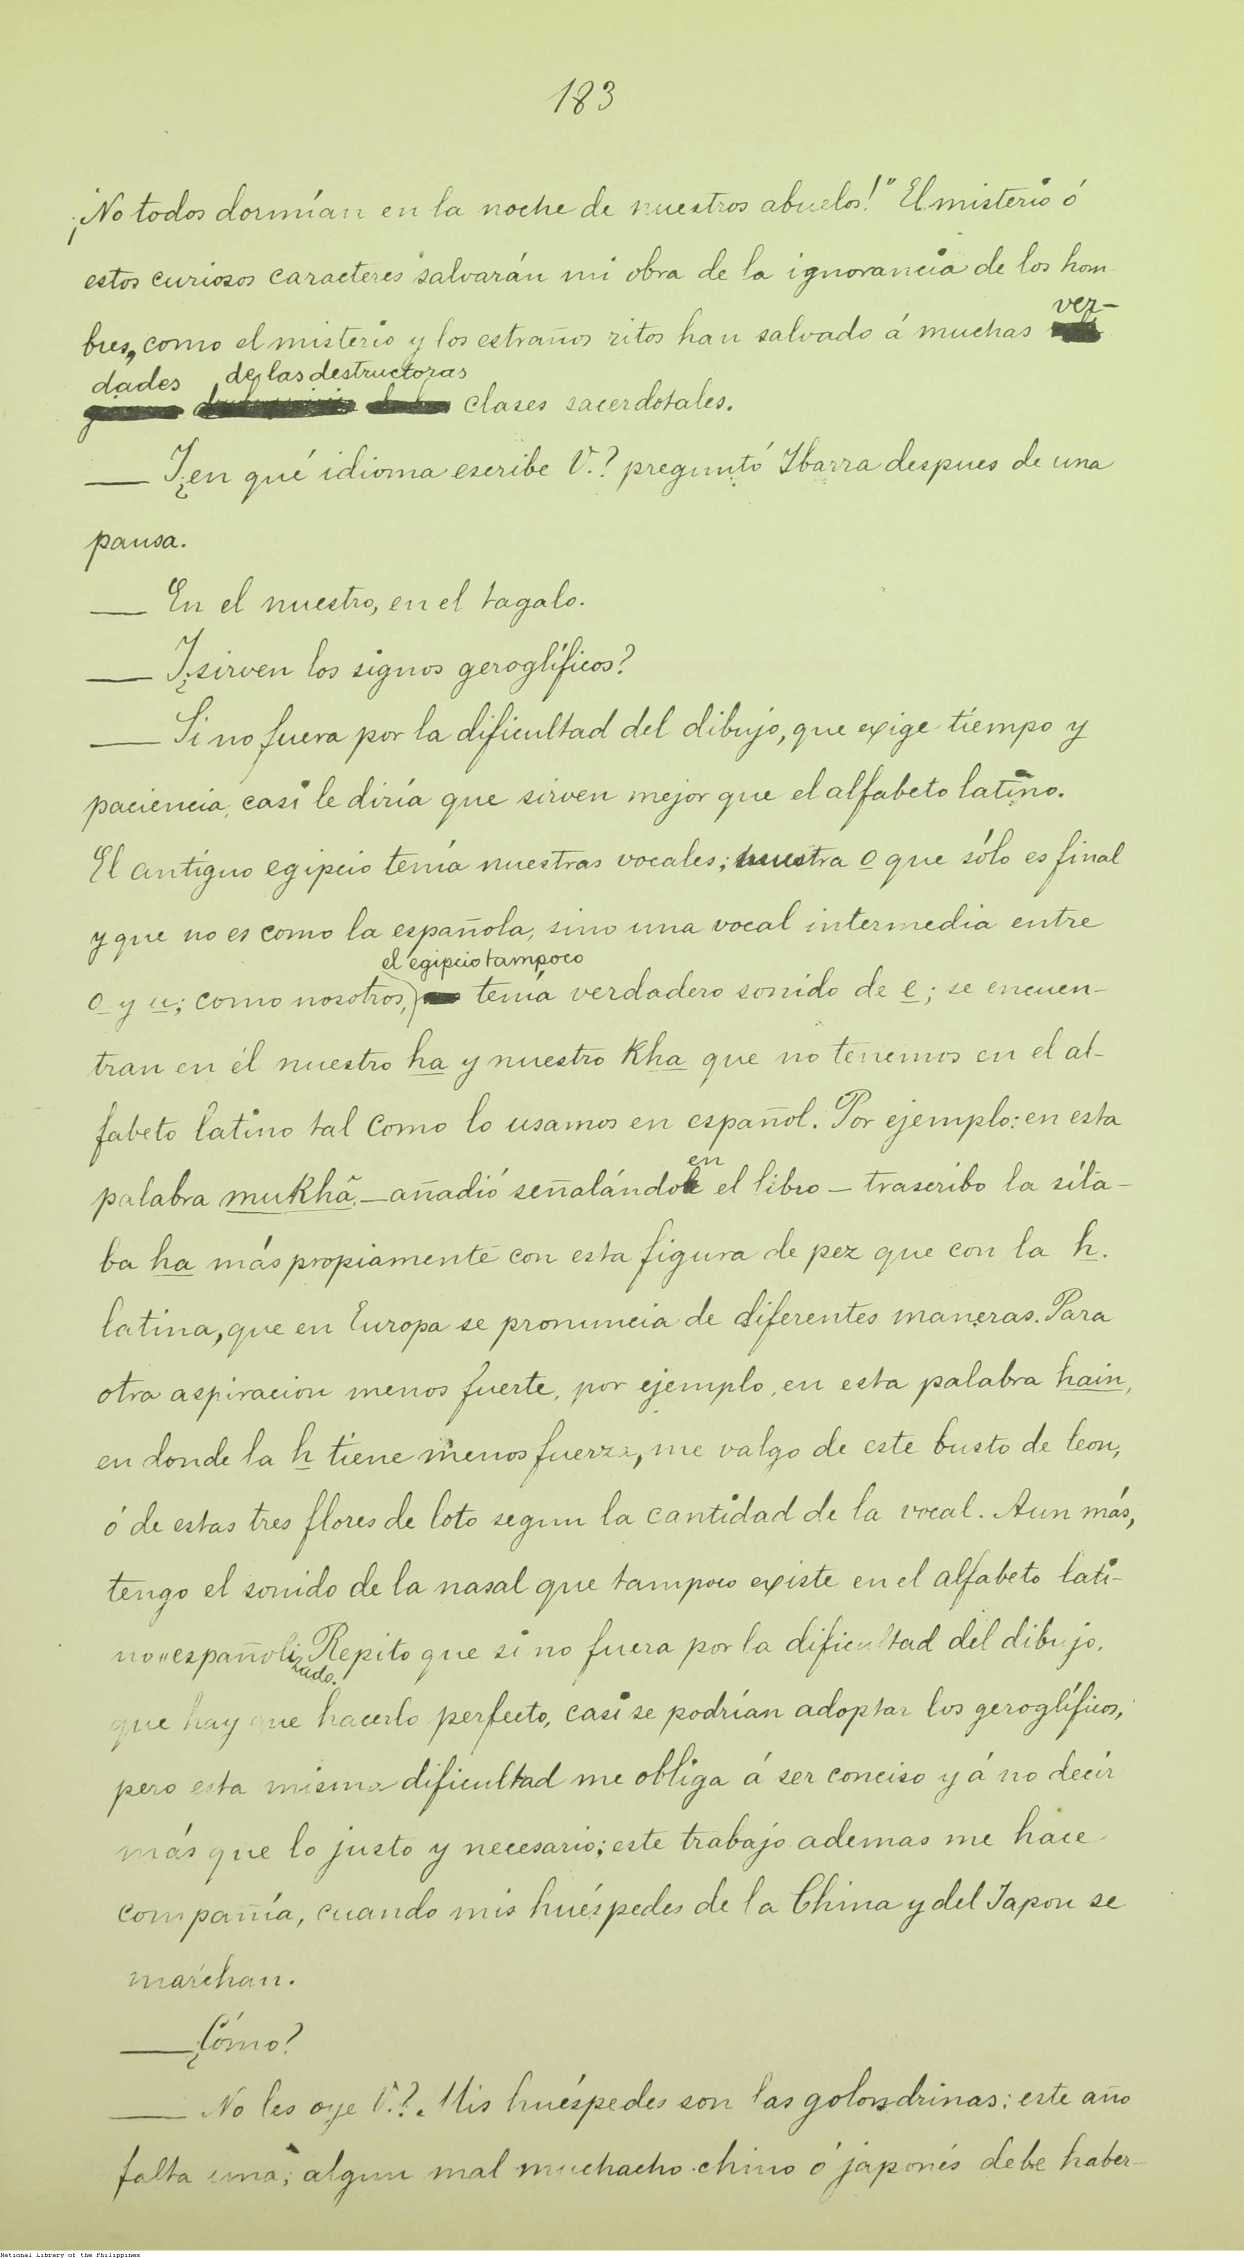 183
¡No todos dormían en la noche de nuestros abuelos!" El misterio ó
estos curiosos caracteres salvarán mi obra de la ignorancia de los hom
bres, como el misterio y los estraños ritos han salvado á muchas ver-
dades de las destructoras clases sacerdotales.
— Y ¿en qué idioma escribe V.? preguntó Ibarra despues de una
pausa.
— En el nuestro, en el tagalo.
— Y ¿sirven los signos geroglíficos?
— Si no fuera por la dificultad del dibujo, que exige tiempo y
paciencia, casi le diría que sirven mejor que el alfabeto latino.
El antiguo egipcio tenía nuestras vocales; nuestra o que sólo es final
y que no es como la española, sino una vocal intermedia entre
o y u; como nosotros, el egipcio tampoco tenía verdadero sonido de e; se encuen-
tran en él nuestro ha y nuestro kha que no tenemos en el al-
fabeto latino tal como lo usamos en español. Por ejemplo: en esta
palabra mukhâ, — añadió señalándo en el libro — trascribo la síla-
ba ha más propiamente con esta figura de pez que con la h.
latina, que en Europa se pronuncia de diferentes maneras. Para
otra aspiracion menos fuerte, por ejemplo, en esta palabra hain,
en donde la h tiene menos fuerza, me valgo de este busto de leon,
ó de estas tres flores de loto segun la cantidad de la vocal. Aun más,
tengo el sonido de la nasal que tampoco existe en el alfabeto lati-
no españolizado. Repito que si no fuera por la dificultad del dibujo,
que hay que hacerlo perfecto, casi se podrían adoptar los geroglíficos,
pero esta misma dificultad me obliga á ser conciso y á no decir
más que lo justo y necesario; este trabajo ademas me hace
compañía, cuando mis huéspedes de la China y del Japon se
marchan.
— ¿Cómo?
— No les oye V.?. Mis huéspedes son las golondrinas; este año
falta una; algun mal muchacho chino ó japonés debe haber-
National Library of the Philippines